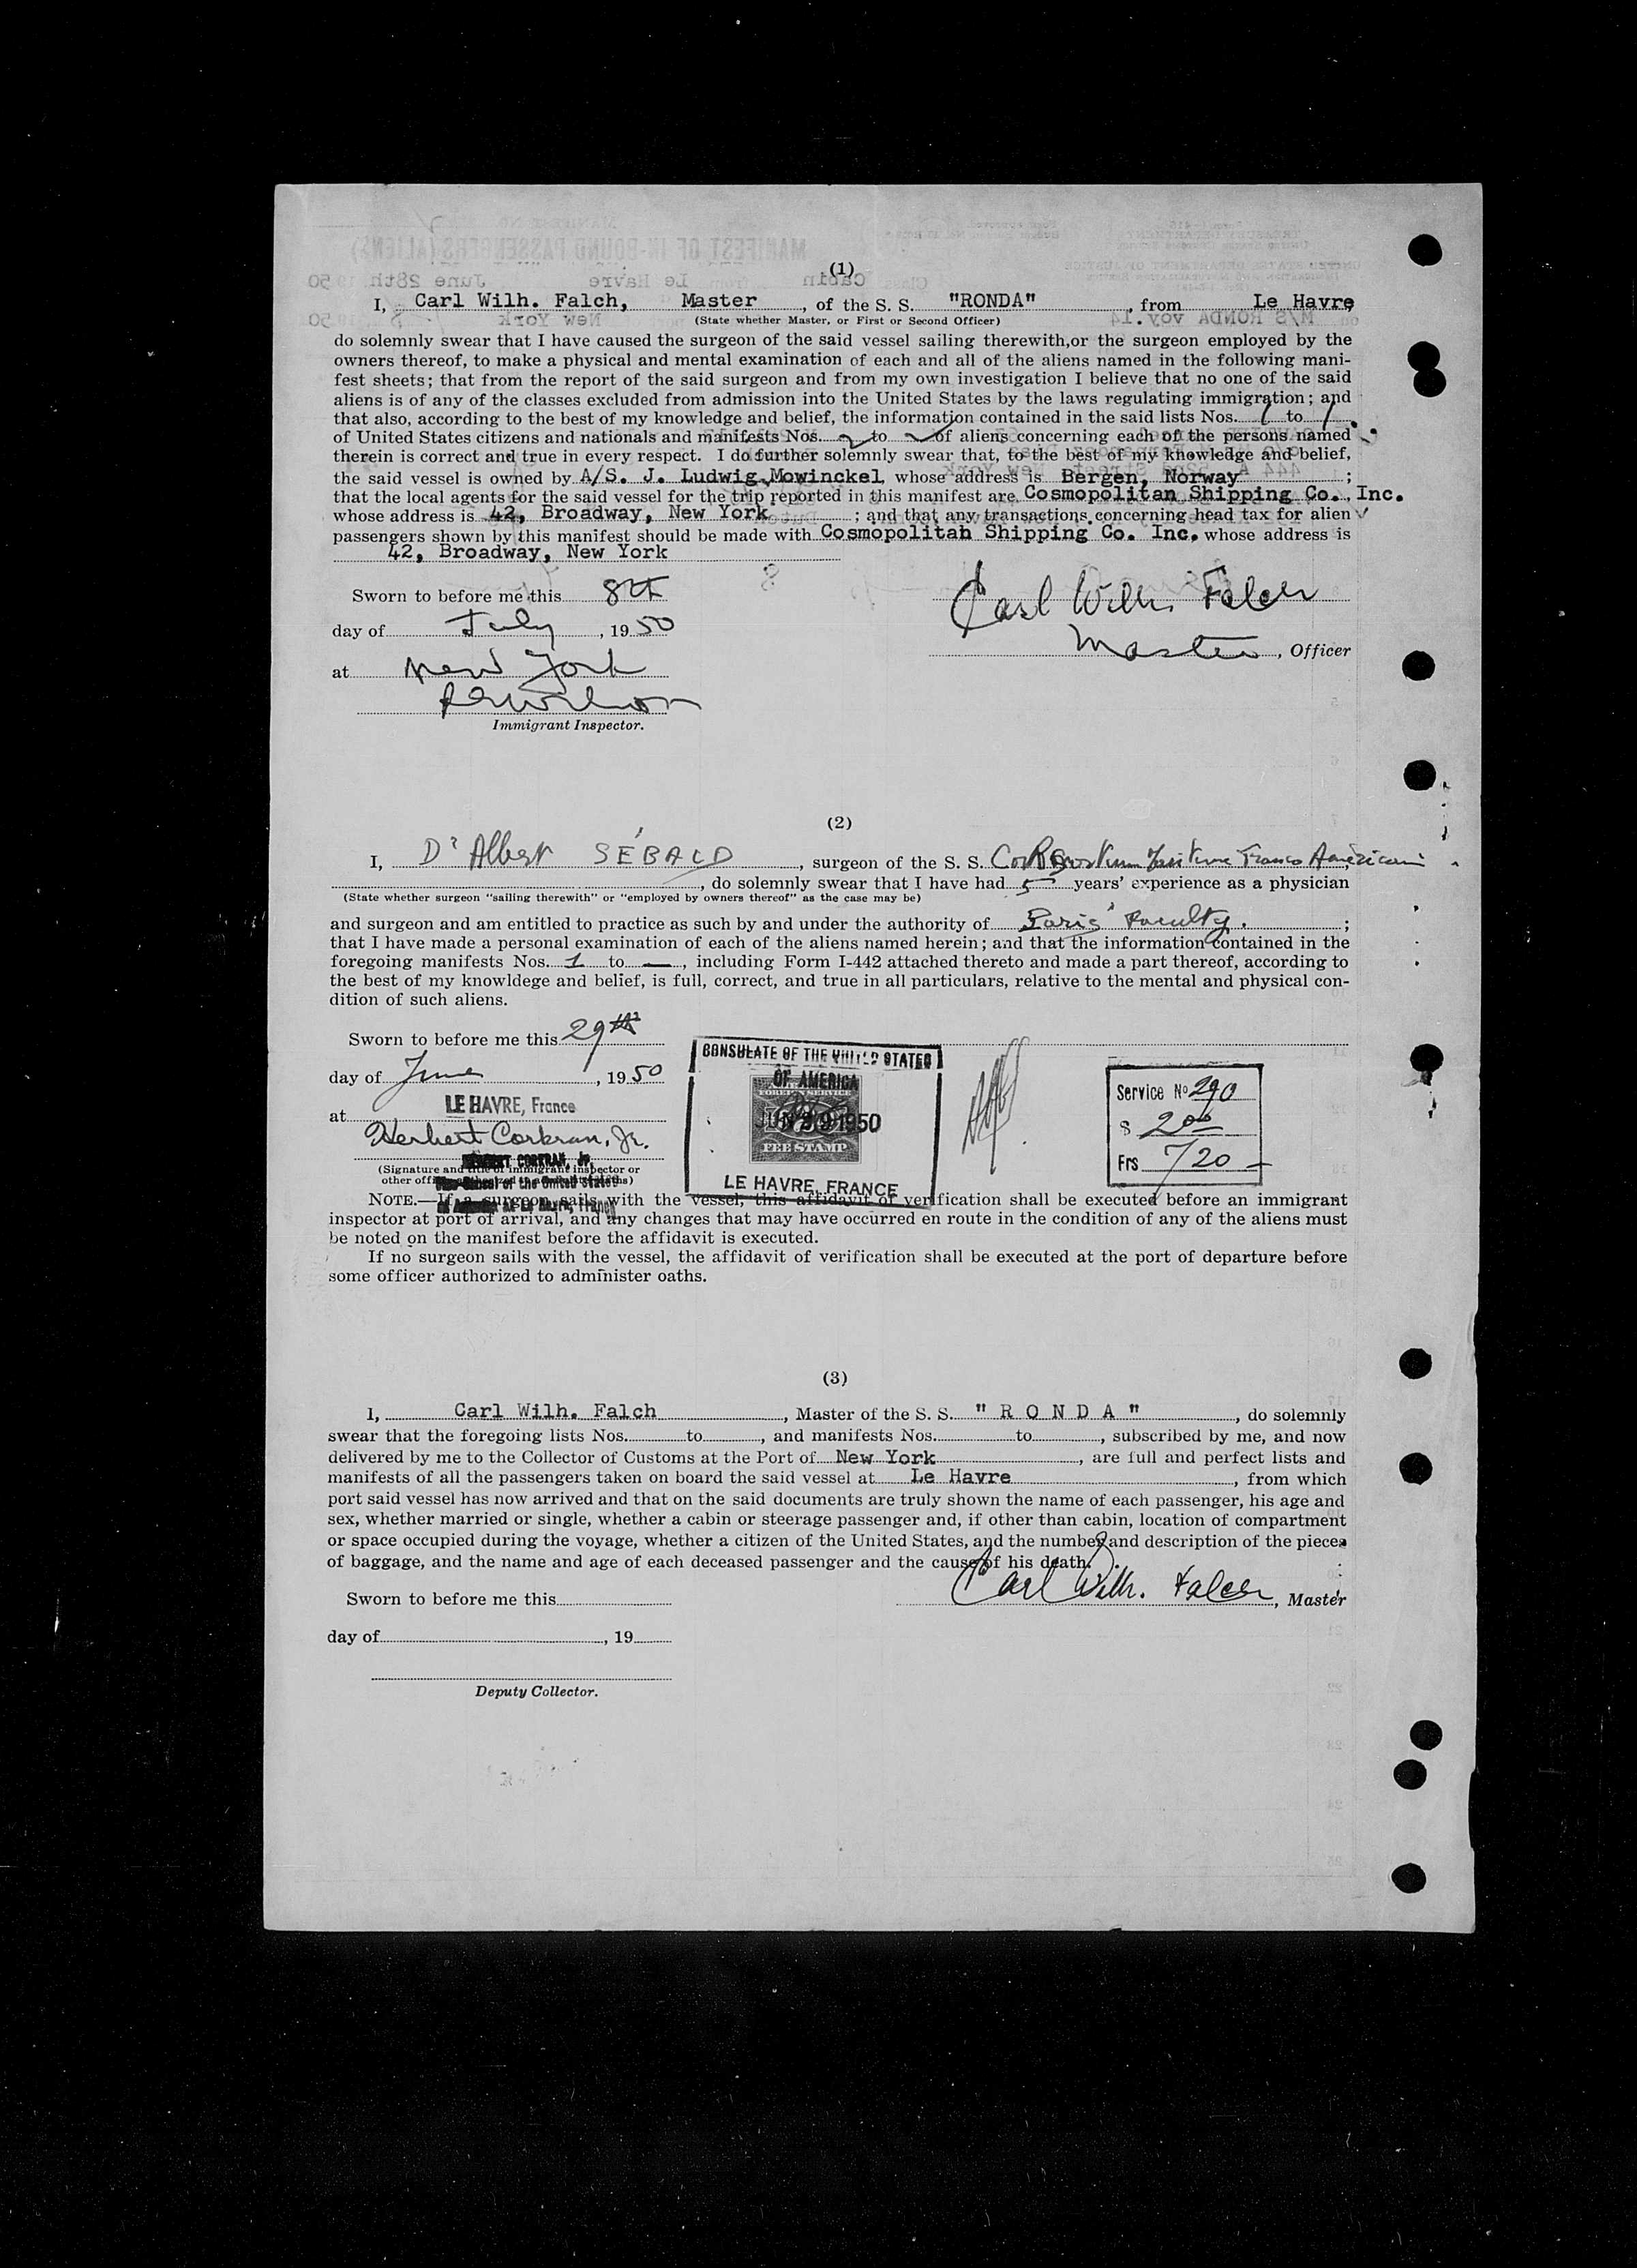 (1)
I, Carl Wilh. Falch, Master, of the S. S. "RONDA", from Le Havre
(State whether Master, or First or Second Officer)
do solemnly swear that I have caused the surgeon of the said vessel sailing therewith, or the surgeon employed by the
owners thereof, to make a physical and mental examination of each and all of the aliens named in the following mani-
fest sheets; that from the report of the said surgeon and from my own investigation I believe that no one of the said
aliens is of any of the classes excluded from admission into the United States by the laws regulating immigration; and
that also, according to the best of my knowledge and belief, the information contained in the said lists Nos. 1 to 1
of United States citizens and nationals and manifests Nos. 2 to 2 of aliens concerning each of the persons named
therein is correct and true in every respect. I do further solemnly swear that, to the best of my knowledge and belief,
the said vessel is owned by A/S. J. Ludwig Mowinckel, whose address is Bergen, Norway ;
that the local agents for the said vessel for the trip reported in this manifest are Cosmopolitan Shipping Co., Inc.
whose address is 42, Broadway, New York ; and that any transactions concerning head tax for alien
passengers shown by this manifest should be made with Cosmopolitan Shipping Co. Inc. whose address is
42, Broadway, New York
Sworn to before me this 8th
Carl Wilh. Falch
day of July, 1950
Master, Officer
at New York
Immigrant Inspector.
(2)
I, Dr Albert SÉBALD, surgeon of the S. S. Franco Américain
, do solemnly swear that I have had 5 years' experience as a physician
(State whether surgeon "sailing therewith" or "employed by owners thereof" as the case may be)
and surgeon and am entitled to practice as such by and under the authority of Paris' Faculty. ;
that I have made a personal examination of each of the aliens named herein; and that the information contained in the
foregoing manifests Nos. 1 to —, including Form I-442 attached thereto and made a part thereof, according to
the best of my knowldege and belief, is full, correct, and true in all particulars, relative to the mental and physical con-
dition of such aliens.
Sworn to before me this 29th
day of June, 1950
at LE HAVRE, France
Herbert Corkran, Jr.
HERBERT CORKRAN, Jr.
(Signature and title of immigrant inspector or
other officer
of the United States
CONSULATE OF THE UNITED STATES
OF AMERICA
FOREIGN SERVICE
JUN 29 1950
FEE STAMP
LE HAVRE, FRANCE
Service No 290
$ 2.00
Frs 720 —
NOTE.—If a surgeon sails with the vessel, this affidavit of verification shall be executed before an immigrant
inspector at port of arrival, and any changes that may have occurred en route in the condition of any of the aliens must
be noted on the manifest before the affidavit is executed.
If no surgeon sails with the vessel, the affidavit of verification shall be executed at the port of departure before
some officer authorized to administer oaths.
(3)
I, Carl Wilh. Falch, Master of the S. S. "RONDA", do solemnly
swear that the foregoing lists Nos. to , and manifests Nos. to , subscribed by me, and now
delivered by me to the Collector of Customs at the Port of New York, are full and perfect lists and
manifests of all the passengers taken on board the said vessel at Le Havre, from which
port said vessel has now arrived and that on the said documents are truly shown the name of each passenger, his age and
sex, whether married or single, whether a cabin or steerage passenger and, if other than cabin, location of compartment
or space occupied during the voyage, whether a citizen of the United States, and the number and description of the pieces
of baggage, and the name and age of each deceased passenger and the cause of his death.
Carl Wilh. Falch, Master
Sworn to before me this
day of , 19
Deputy Collector.